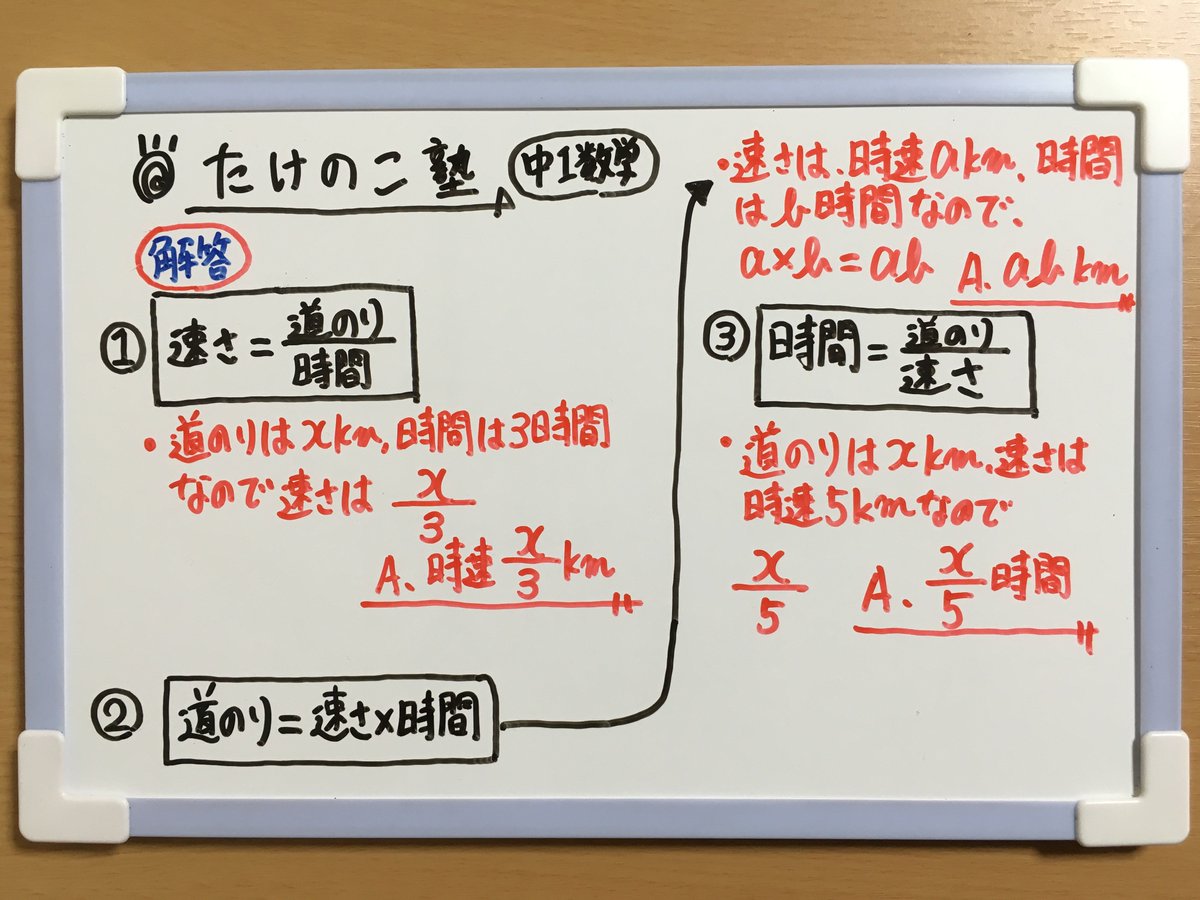 たけのこ塾 中1数学
解答
① 速さ = 道のり/時間
・道のりはxkm,時間は3時間
なので速さは x/3
A. 時速 x/3 km
② 道のり=速さ×時間
・速さは、時速akm、時間
はb時間なので、
a×b=ab A. ab km
③ 時間 = 道のり/速さ
・道のりはxkm、速さは
時速5kmなので
x/5 A. x/5 時間